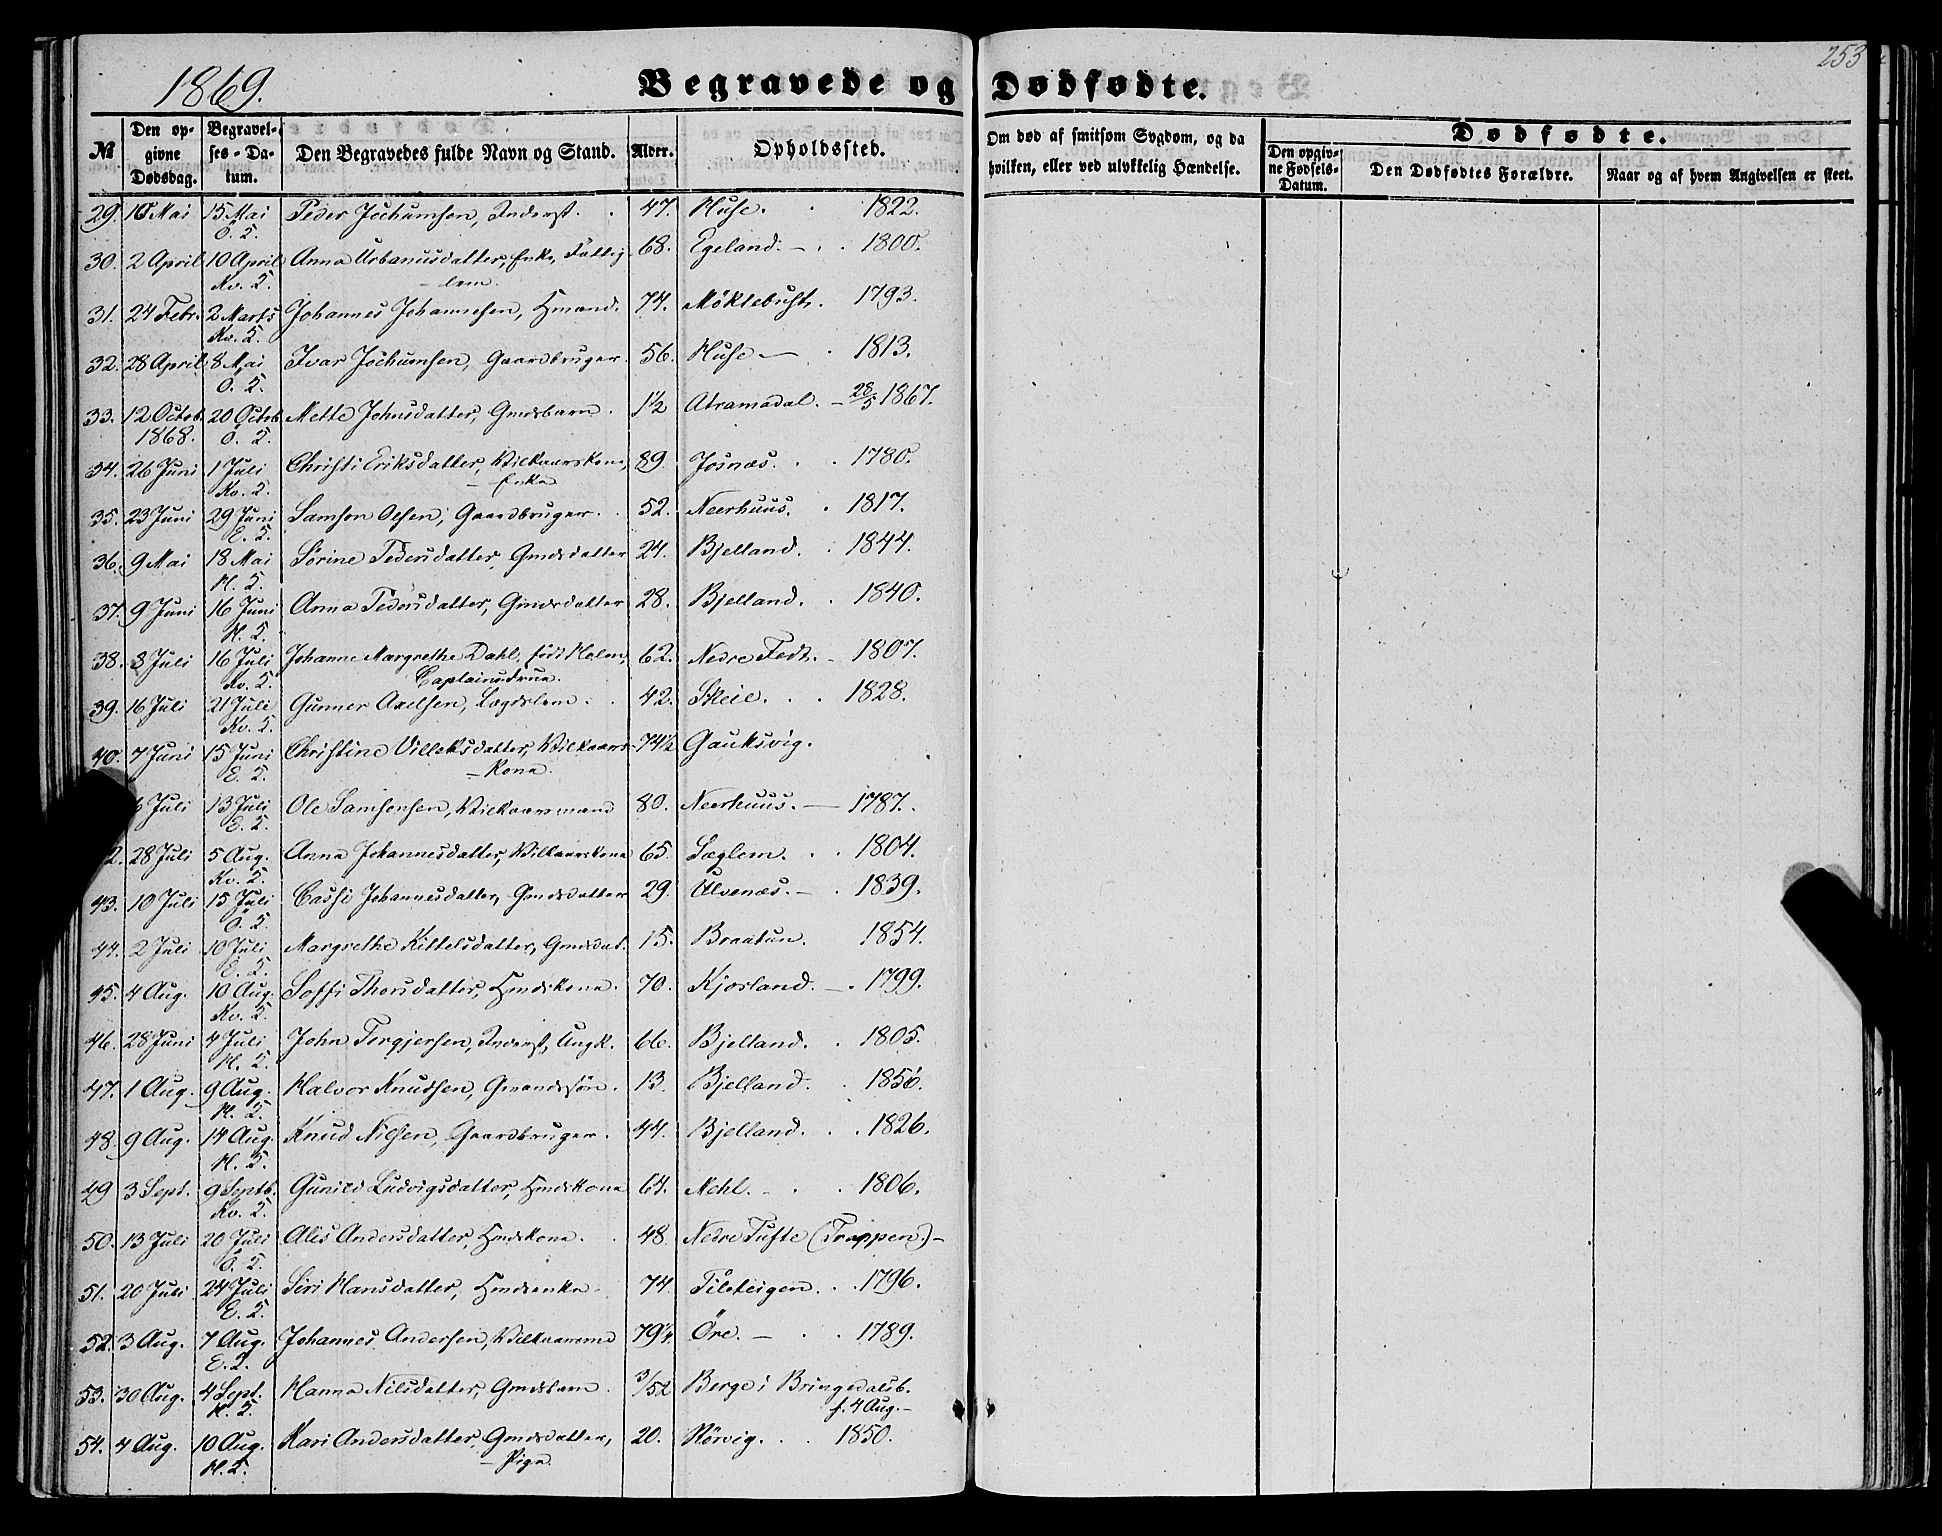 253
1869.
Begravede og Dødfødte.
№
Den opgivne Dødsdag.
Begravelses-Datum.
Den Begravedes fulde Navn og Stand.
Alder.
Opholdssted.
Om død af smitsom Sygdom, og da hvilken, eller ved ulykkelig Hændelse.
Dødfødte.
Den opgivne Fødsels-Datum.
Den Dødfødtes Forældre.
Naar og af hvem Angivelsen er skeet.
29. 10 Mai 15 Mai Peder Jochumsen, Inderst. 47. Huse. 1822.
Ö. S.
30. 2 April 10 April Anna Urbanusdatter, Enke, Fattig- 68. Egeland. 1800.
Kv. S. lem.
31. 24 Febr. 2 Marts Johannes Johannesen, Hmand. 74. Möklebust. 1793.
Kv. S.
32. 28 April 8 Mai Ivar Jochumsen, Gaardbruger. 56. Huse 1813.
Ö. S.
33. 12 Octob. 20 Octob. Mette Johnsdatter, Gmdsbarn. 1½ Atramadal. 28/5 1867.
1868. Ö. S.
34. 26 Juni 1 Juli Christi Eriksdatter, Vilkaarskone, 89. Josnæs. 1780.
Kv. S. Enke
35. 23 Juni 29 Juni Samson Olsen, Gaardbruger. 52. Neerhuus. 1817.
E. S.
36. 9 Mai 18 Mai Sörine Pedersdatter, Gmdsdatter 24. Bjelland. 1844.
H. S.
37. 9 Juni 16 Juni Anna Pedersdatter, Gmdsdatter 28. Bjelland. 1840.
H. S.
38. 8 Juli 16 Juli Johanne Margrethe Dahl, født Holm, 62. Nedre Fedt. 1807.
Kv. S. Captainsfrue.
39. 16 Juli 21 Juli Gunner Axelsen, Lægdslem. 42. Skeie. 1828.
Kv. S.
40. 7 Juni 15 Juni Christine Villeksdatter, Vilkaars- 74½ Gauksvig.
E. S. kone.
6 Juli 13 Juli Ole Samsonsen, Vilkaarsmand 80. Neerhuus. 1787.
E. S.
2. 28 Juli 5 Aug. Anna Johannesdatter, Vilkaarskone 65. Sæglem. 1804.
Kv. S.
43. 10 Juli 15 Juli Cassi Johannesdatter, Gmdsdatter 29. Ulvenæs. 1839.
Ö. S.
44. 2 Juli 10 Juli Margrethe Kittelsdatter, Gmdsdat. 15. Braatun. 1854.
E. S.
45. 4 Aug. 10 Aug. Soffi Thorsdatter, Hmdskone. 70. Kjorland. 1799.
Kv. S.
46. 28 Juni 4 Juli John Tergjersen, Inderst, Ungk. 66. Bjelland. 1805.
H. S.
47. 1 Aug. 9 Aug. Halvor Knudsen, Gmandssön. 13. Bjelland. 1856.
H. S.
48. 9 Aug. 14 Aug. Knud Nilsen, Gaardbruger. 44. Bjelland. 1826.
H. S.
49 3 Sept. 9 Septb. Gunild Ludvigsdatter, Hmdskone 64. Mehl. 1806.
Kv. S.
50. 13 Juli 20 Juli Ales Andersdatter, Hmdskone. 48. Nedre Tufte (Trappen)
Ö. S.
51. 20 Juli 24 Juli Siri Hansdatter, Hmdsenke. 74. Tileteigen. 1796.
E. S.
52. 3 Aug. 7 Aug. Johannes Andersen, Vilkaarsmd 79¼ Öre. 1789.
E. S.
53. 30 Aug. 4 Sept. Hanna Nilsdatter, Gmdsbarn. 3/52 Berge i Bringedalsb.
H. S. f. 4 Aug.
54. 4 Aug. 10 Aug. Kari Andersdatter, Gmdsdatter, 20. Rörvig. 1850.
H. S. Pige.